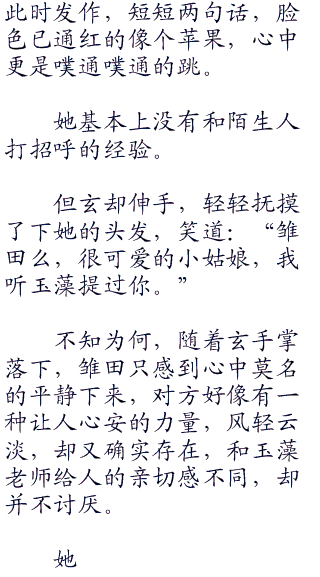 此时发作，短短两句话，脸
色已通红的像个苹果，心中
更是噗通噗通的跳。
她基本上没有和陌生人
打招呼的经验。
但玄却伸手，轻轻抚摸
了下她的头发，笑道：“雏
田么，很可爱的小姑娘，我
听玉藻提过你。”
不知为何，随着玄手掌
落下，雏田只感到心中莫名
的平静下来，对方好像有一
种让人心安的力量，风轻云
淡，却又确实存在，和玉藻
老师给人的亲切感不同，却
并不讨厌。
她